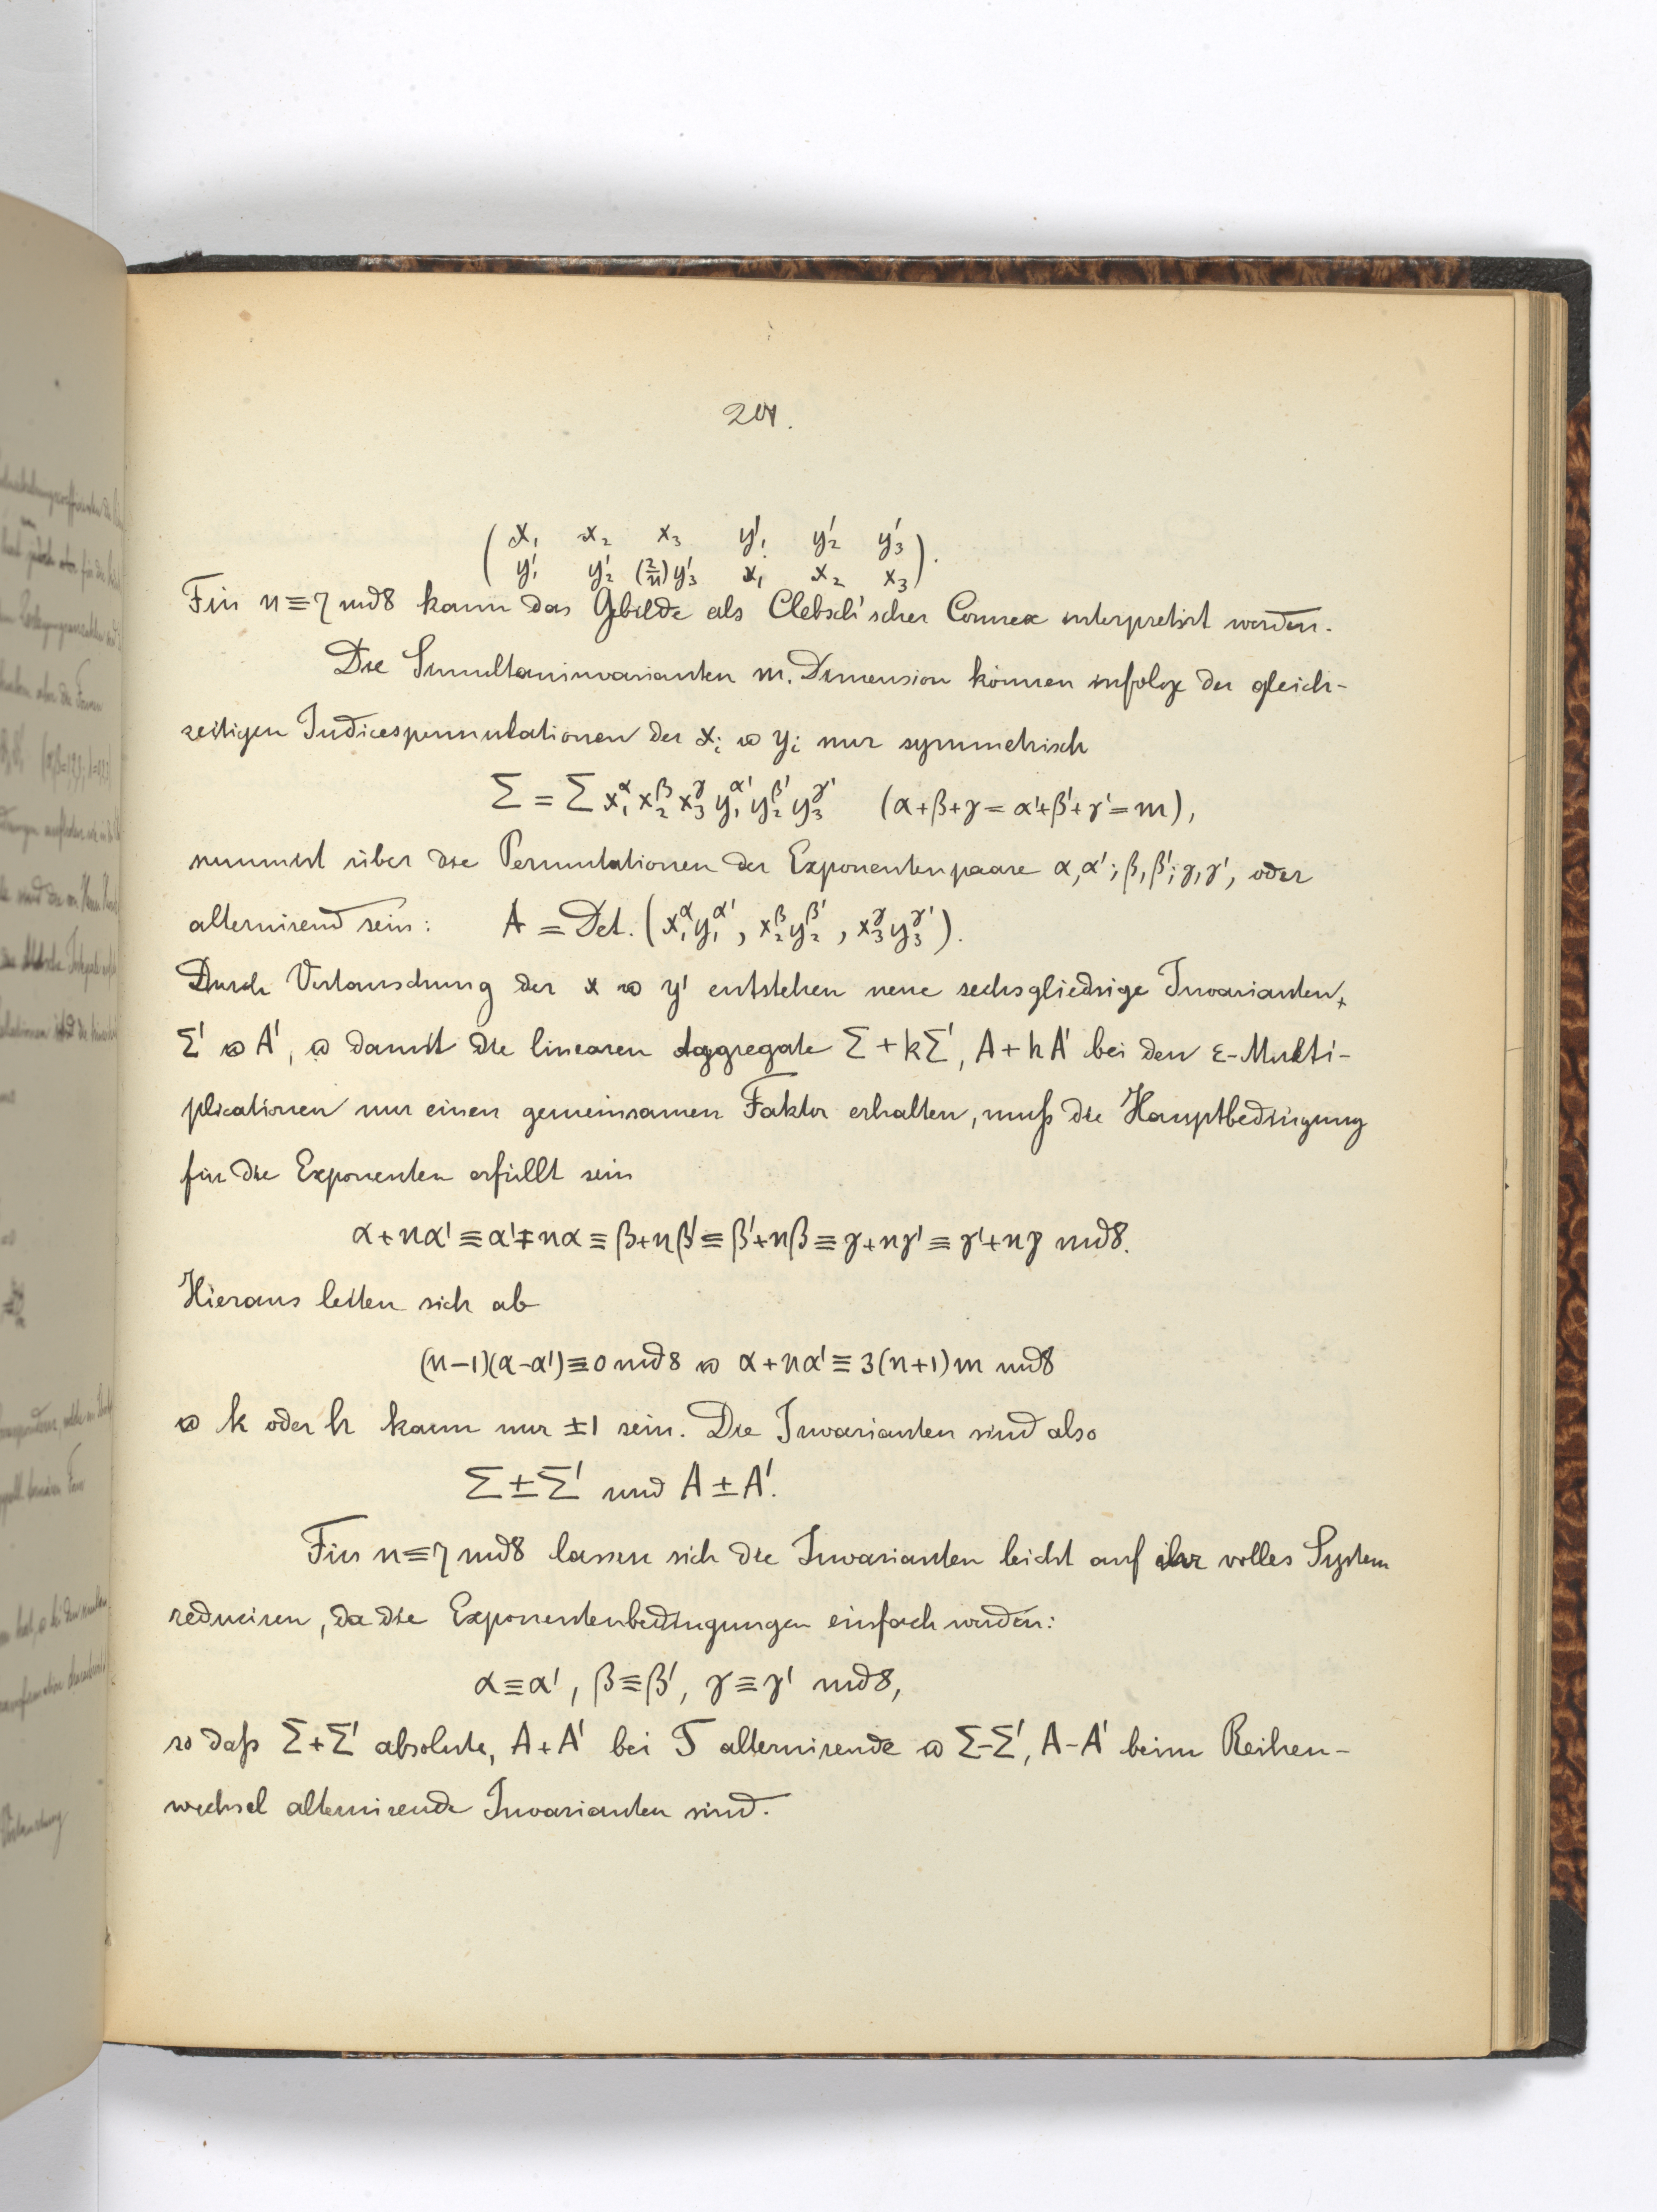 201.
( x₁ x₂ x₃ y'₁ y'₂ y'₃
y'₁ y'₂ (2/n)y'₃ x₁ x₂ x₃ ).
Für n≡7 mod 8 kann das Gebilde als Clebsch'scher Connex interpretirt werden.
Die Simultaninvarianten m. Dimension können infolge der gleich-
zeitigen Indicespermutationen der xᵢ u yᵢ nur symmetrisch
Σ = Σ x₁^α x₂^β x₃^γ y₁^α' y₂^β' y₃^γ' (α+β+γ = α'+β'+γ' = m),
summirt über die Permutationen der Exponentenpaare α,α'; β,β'; γ,γ', oder
alternirend sein: A = Det. (x₁^α y₁^α', x₂^β y₂^β', x₃^γ y₃^γ').
Durch Vertauschung der x u y' entstehen neue sechsgliedrige Invarianten,
Σ' u A', u damit die linearen Aggregate Σ + kΣ', A + hA' bei den ε-Multi-
plicationen nur einen gemeinsamen Faktor erhalten, muß die Hauptbedingung
für die Exponenten erfüllt sein
α+nα' ≡ α'+nα ≡ β+nβ' ≡ β'+nβ ≡ γ+nγ' ≡ γ'+nγ mod 8.
Hieraus leiten sich ab
(n−1)(α−α') ≡ 0 mod 8 u α+nα' ≡ 3(n+1)m mod 8
u k oder h kann nur ±1 sein. Die Invarianten sind also
Σ ± Σ' und A ± A'.
Für n≡7 mod 8 lassen sich die Invarianten leicht auf ihr volles System
reduciren, da die Exponentenbedingungen einfach werden:
α≡α', β≡β', γ≡γ' mod 8,
so daß Σ+Σ' absolute, A+A' bei T alternirende u Σ−Σ', A−A' beim Reihen-
wechsel alternirende Invarianten sind.